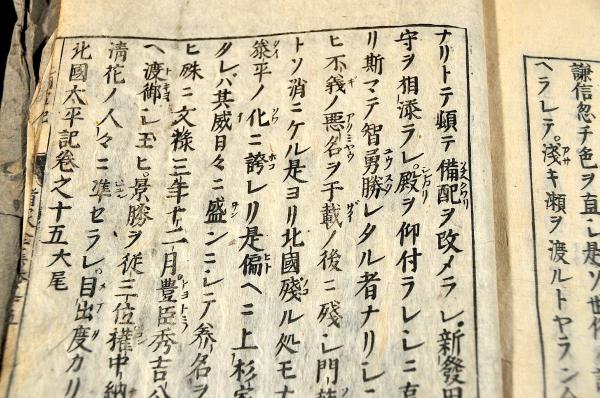 謙信忽チ色ヲ直シ是ソ世俗ノ
ヘラレテ。淺キ瀬ヲ渡ルトヤラン
ナリトテ頓テ備配ヲ改メラレ。新發田
守ヲ相添ラレ。殿ヲ仰付ラレシニ
リ斯マテ智勇勝レタル者ナリシニ
ヒ不義ノ悪名ヲ千載ノ後ニ残シ門
トソ消ニケル是ヨリ北國殘ル処モナ
泰平ノ化ニ誇レリ是偏ヘニ上杉
タレバ其威日々ニ盛ンニシテ参名ヲ
ヒ殊ニ文祿三年十二月豊臣秀吉
ヘ渡御シ玉ヒ。景勝ヲ従三位權中納
清花ノ人々ニ準セラレ。目出度カリ
北國太平記卷之十五大尾